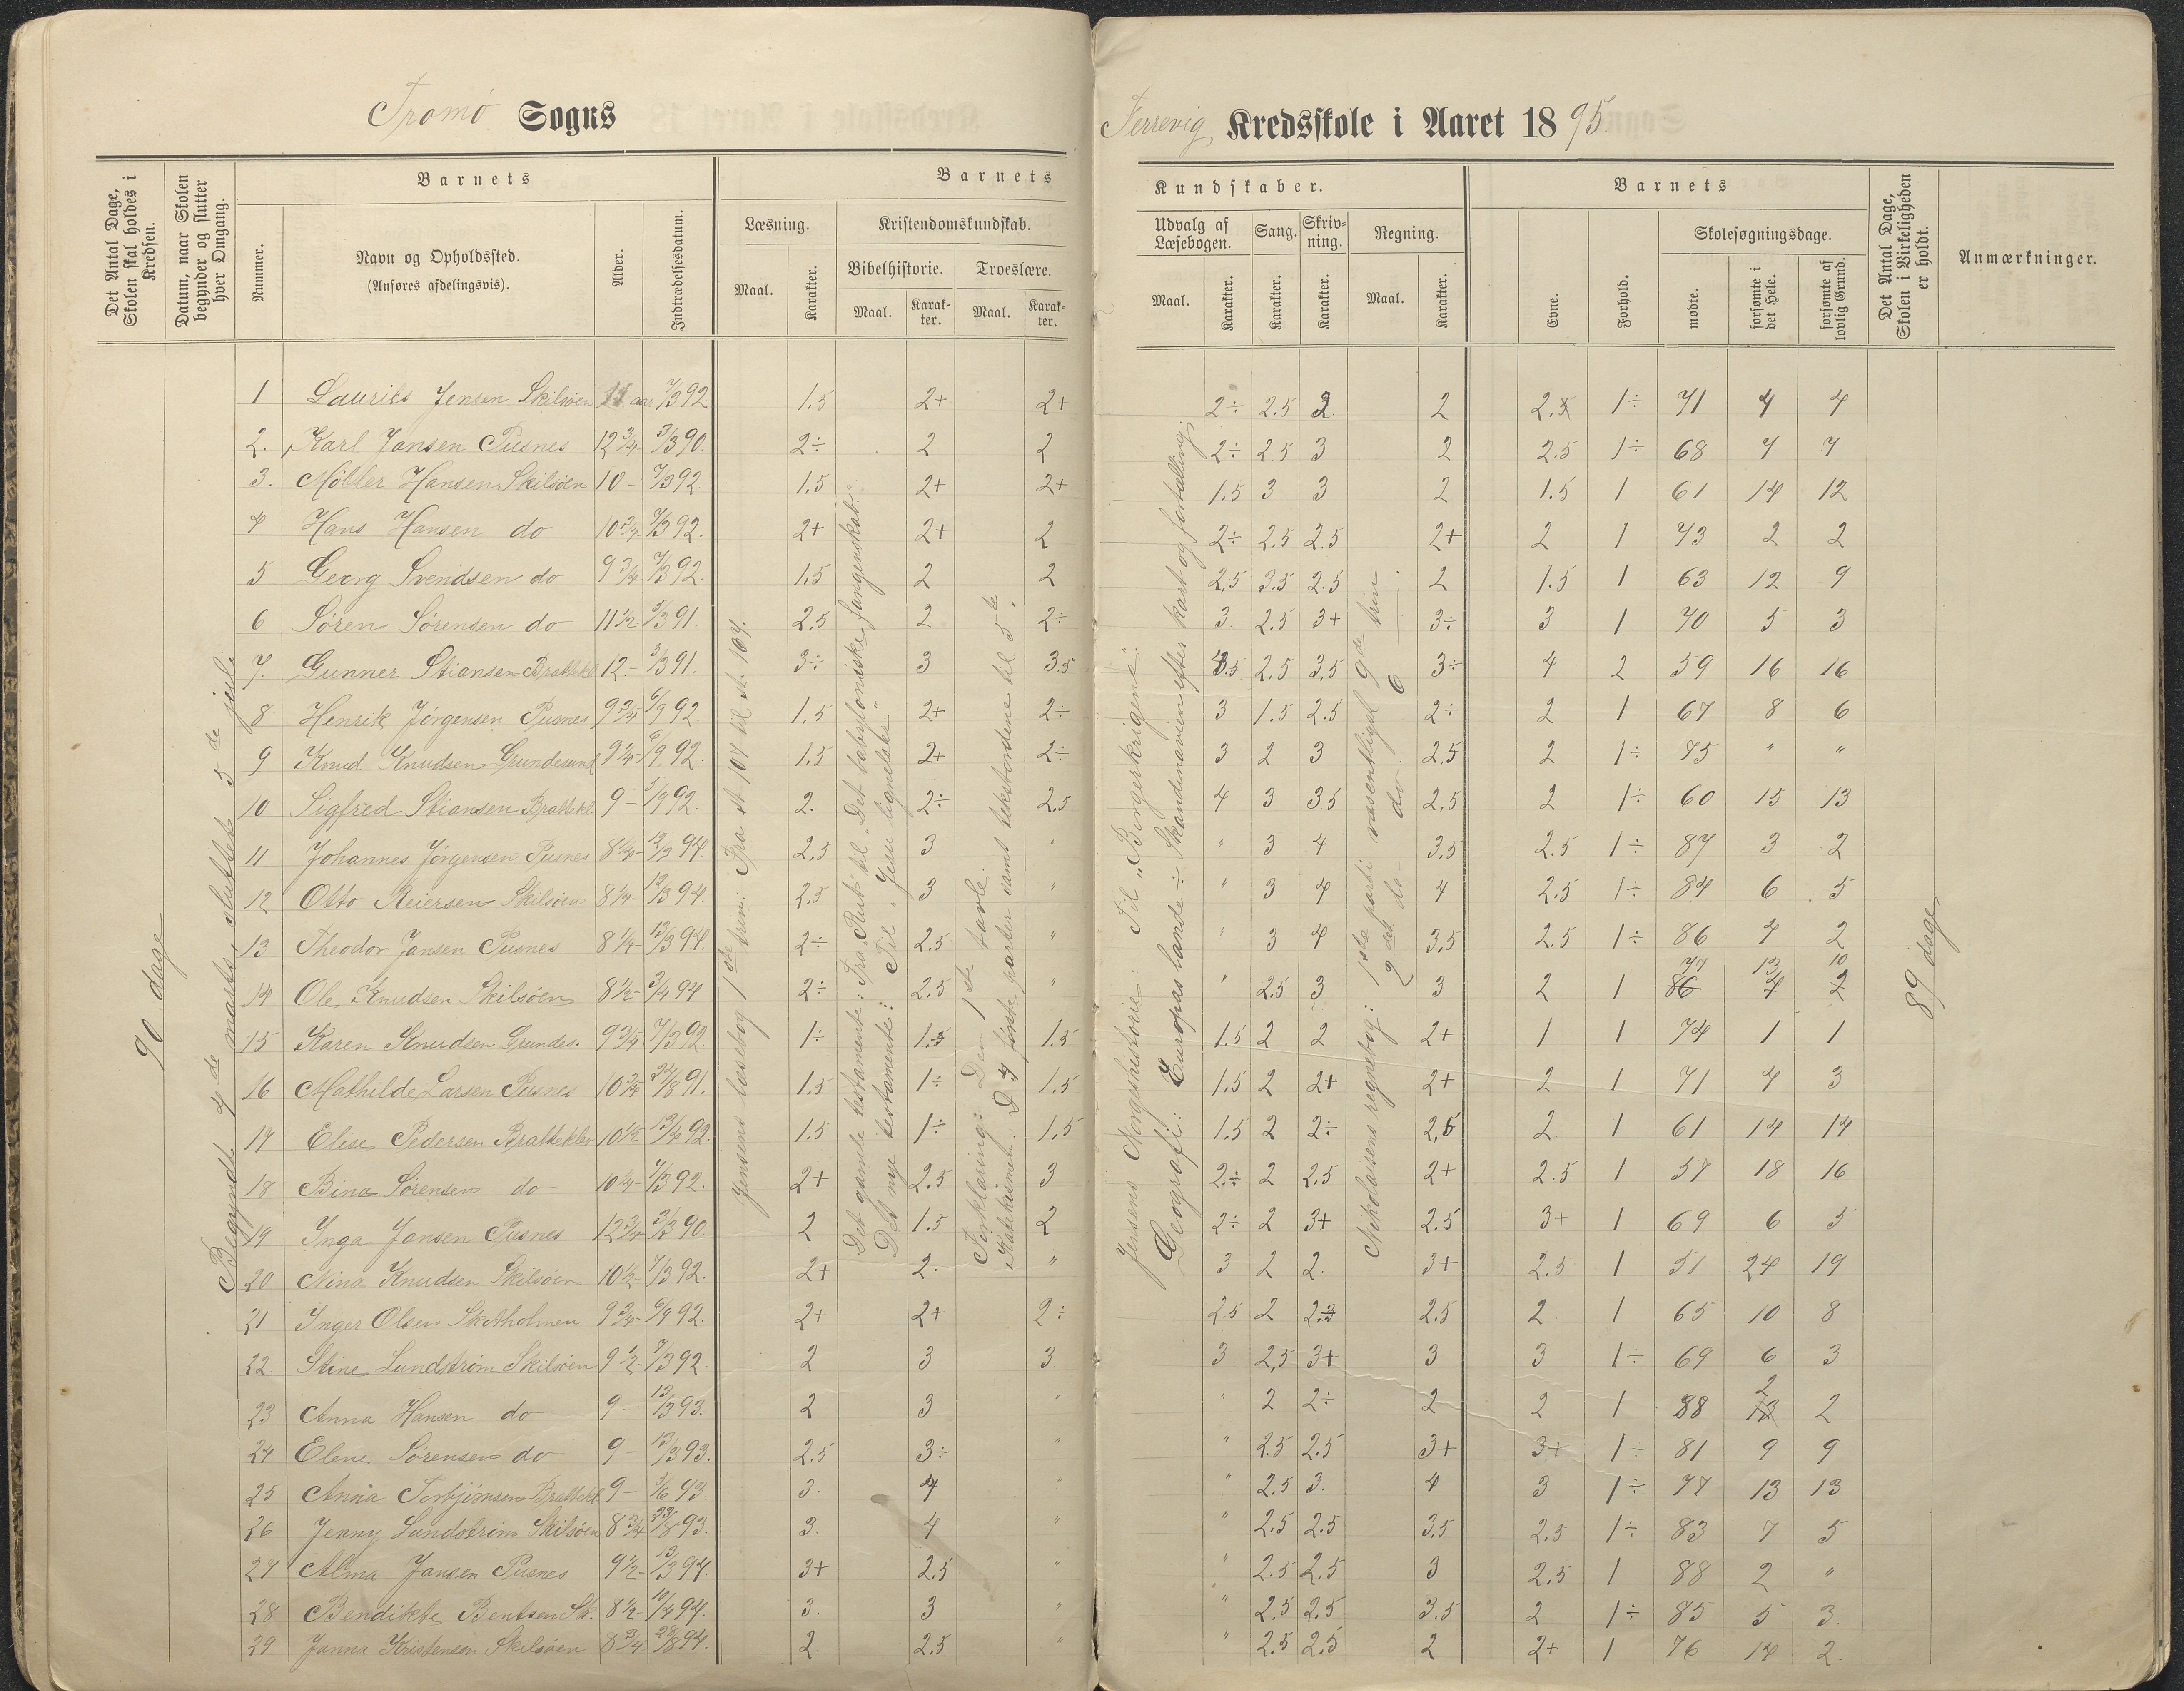 Tromø Sogns
Færrevig Kredsskole i Aaret 1895.
Det Antal Dage, Skolen skal holdes i Kredsen.
Datum, naar Skolen begynder og slutter hver Omgang.
Barnets
Nummer.
Navn og Opholdssted.
(Anføres afdelingsvis).
Alder.
Indtrædelsesdatum.
Barnets
Læsning.
Maal.
Karakter.
Kristendomskundskab.
Bibelhistorie.
Maal.
Karakter.
Troeslære.
Maal.
Karakter.
Kundskaber.
Udvalg af Læsebogen.
Maal.
Karakter.
Sang.
Karakter.
Skrivning.
Karakter.
Regning.
Maal.
Karakter.
Barnets
Evne.
Forhold.
Skolesøgningsdage.
mødte.
forsømte i det Hele.
forsømte af lovlig Grund.
Det Antal Dage, Skolen i Virkeligheden er holdt.
Anmærkninger.
90 dage
Begyndt 4de marts, sluttede 5de juli.
Jensens læsebog 1ste trin: Fra st. 107 til st. 164.
Det gamle testamente: Fra "Rut" til "Det babyloniske fangenskab".
Det nye testamente: Til "Jesu lignelser".
Forklaring: Den 1ste tavle.
Katekismet: D 4 første parter samt tekstordene til 5te.
Jensens Norgeshistorie: Til "Borgerkrigene".
Geografi: Europas lande ÷ Skandinavien efter kart og fortælling.
Nikolaisens regnebog: 1ste parti væsentligst 9de trin.
2det do do 6 do
89 dage
1 Laurits Jensen Skilsøen 11 aar 7/3 92. 1.5 2+ 2+ 2÷ 2.5 2. 2 2. 1÷ 71 4 4
2. Karl Jansen Pusnes 12 3/4 3/3 90. 2÷ 2 2 2÷ 2.5 3 2 2.5 1÷ 68 7 7
3. Møller Hansen Skilsøen 10 - 7/3 92. 1.5 2+ 2+ 1.5 3 3 2 1.5 1 61 14 12
4 Hans Hansen do 10 3/4 7/3 92. 2+ 2+ 2 2÷ 2.5 2.5 2+ 2 1 73 2 2
5 Georg Svendsen do 9 3/4 7/3 92. 1.5 2 2 2,5 3.5 2.5 2 1.5 1 63 12 9
6 Søren Sørensen do 11 1/2 5/3 91. 2.5 2 2÷ 3. 2.5 3+ 3÷ 3 1 70 5 3
7. Gunner Stiansen Brattekl 12. - 5/3 91. 3÷ 3 3.5 3.5 2.5 3,5 3÷ 4 2 59 16 16
8 Henrik Jørgensen Pusnes 9 3/4 6/9 92. 1.5 2+ 2÷ 3 1.5 2.5 2÷ 2 1 67 8 6
9 Knud Knudsen Grundesund 9 1/4 - 6/9 92. 1.5 2+ 2÷ 3 2 3 2.5 2 1÷ 75 " "
10 Sigfred Stiansen Brattekl 9 - 5/9 92. 2. 2÷ 2.5 4 3 3.5 2.5 2 1÷ 60 15 13
11 Johannes Jørgensen Pusnes 8 1/4 - 12/3 94. 2.5 3 " " 3 4 3.5 2.5 1÷ 87 3 2
12 Otto Reiersen Skilsøen 8 1/4 - 12/3 94. 2.5 3 " " 3 4 4 2.5 1÷ 84 6 5
13 Theodor Jansen Pusnes 8 1/4 - 12/3 94. 2÷ 2.5 " " 3 4 3.5 2.5 1÷ 86 4 2
14 Ole Knudsen Skilsøen 8 1/2 - 3/4 94 2÷ 2.5 " " 2.5 3 3 2 1 77 13 10
15 Karen Knudsen Grundes. 9 3/4 7/3 92. 1÷ 1.5 1.5 1.5 2 2 2+ 1 1 74 1 1
16 Mathilde Larsen Pusnes 10 3/4 27/8 91. 1.5 1÷ 1.5 1.5 2 2+ 2+ 2 1 71 4 3
17 Elise Pedersen Bratteklev 10 1/2 - 19/4 92. 1.5 1÷ 1.5 1.5 2 2÷ 2,5 2 1 61 14 14
18 Bina Sørensen do 10 1/4 - 7/3 92. 2+ 2.5 3 2÷ 2 2.5 2+ 2.5 1 57 18 16
19 Inga Jansen Pusnes 12 3/4 3/3 90. 2 1.5 2 2÷ 2 3+ 2.5 3+ 1 69 6 5
20 Nina Knudsen Skilsøen 10 1/2 - 7/3 92. 2+ 2. " 3 2 2. 3+ 2.5 1 51 24 19
21 Inger Olsen Skotholmen 9 3/4 - 6/9 92. 2+ 2+ 2÷ 2.5 2 2. 2.5 2. 1 65 10 8
22 Stine Lundstrøm Skilsøen 9 1/2 - 7/3 92 2 3 3. 3 2,5 3+ 3 3 1÷ 69 6 3
23 Anna Hansen do 9 - 13/3 93. 2 3 " " 2 2÷ 2 2 1 88 2 2
24 Elene Sørensen do 9 - 13/3 93. 2.5 3÷ " " 2.5 2.5 3+ 3+ 1÷ 81 9 9
25 Anna Torbjørnsen Brattekl 9 - 5/6 93. 3. 4 " " 2.5 3. 4 3 1÷ 77 13 13
26 Jenny Lundstrøm Skilsøen 8 3/4 23/8 93. 3. 4 " " 2.5 2.5 3.5 2.5 1÷ 83 7 5
27 Alma Jansen Pusnes 9 1/2 - 13/3 94. 3+ 2.5 " " 2.5 2.5 3 2.5 1 88 2 "
28 Bendikte Bentsen Sk. 8 1/2 - 10/4 94. 3. 3 " " 2.5 2.5 3.5 2 1÷ 85 5 3.
29 Janna Kristensen Skilsøen 8 3/4 23/8 94. 2. 2.5 " " 2.5 2.5 2 2+ 1 76 14 2.